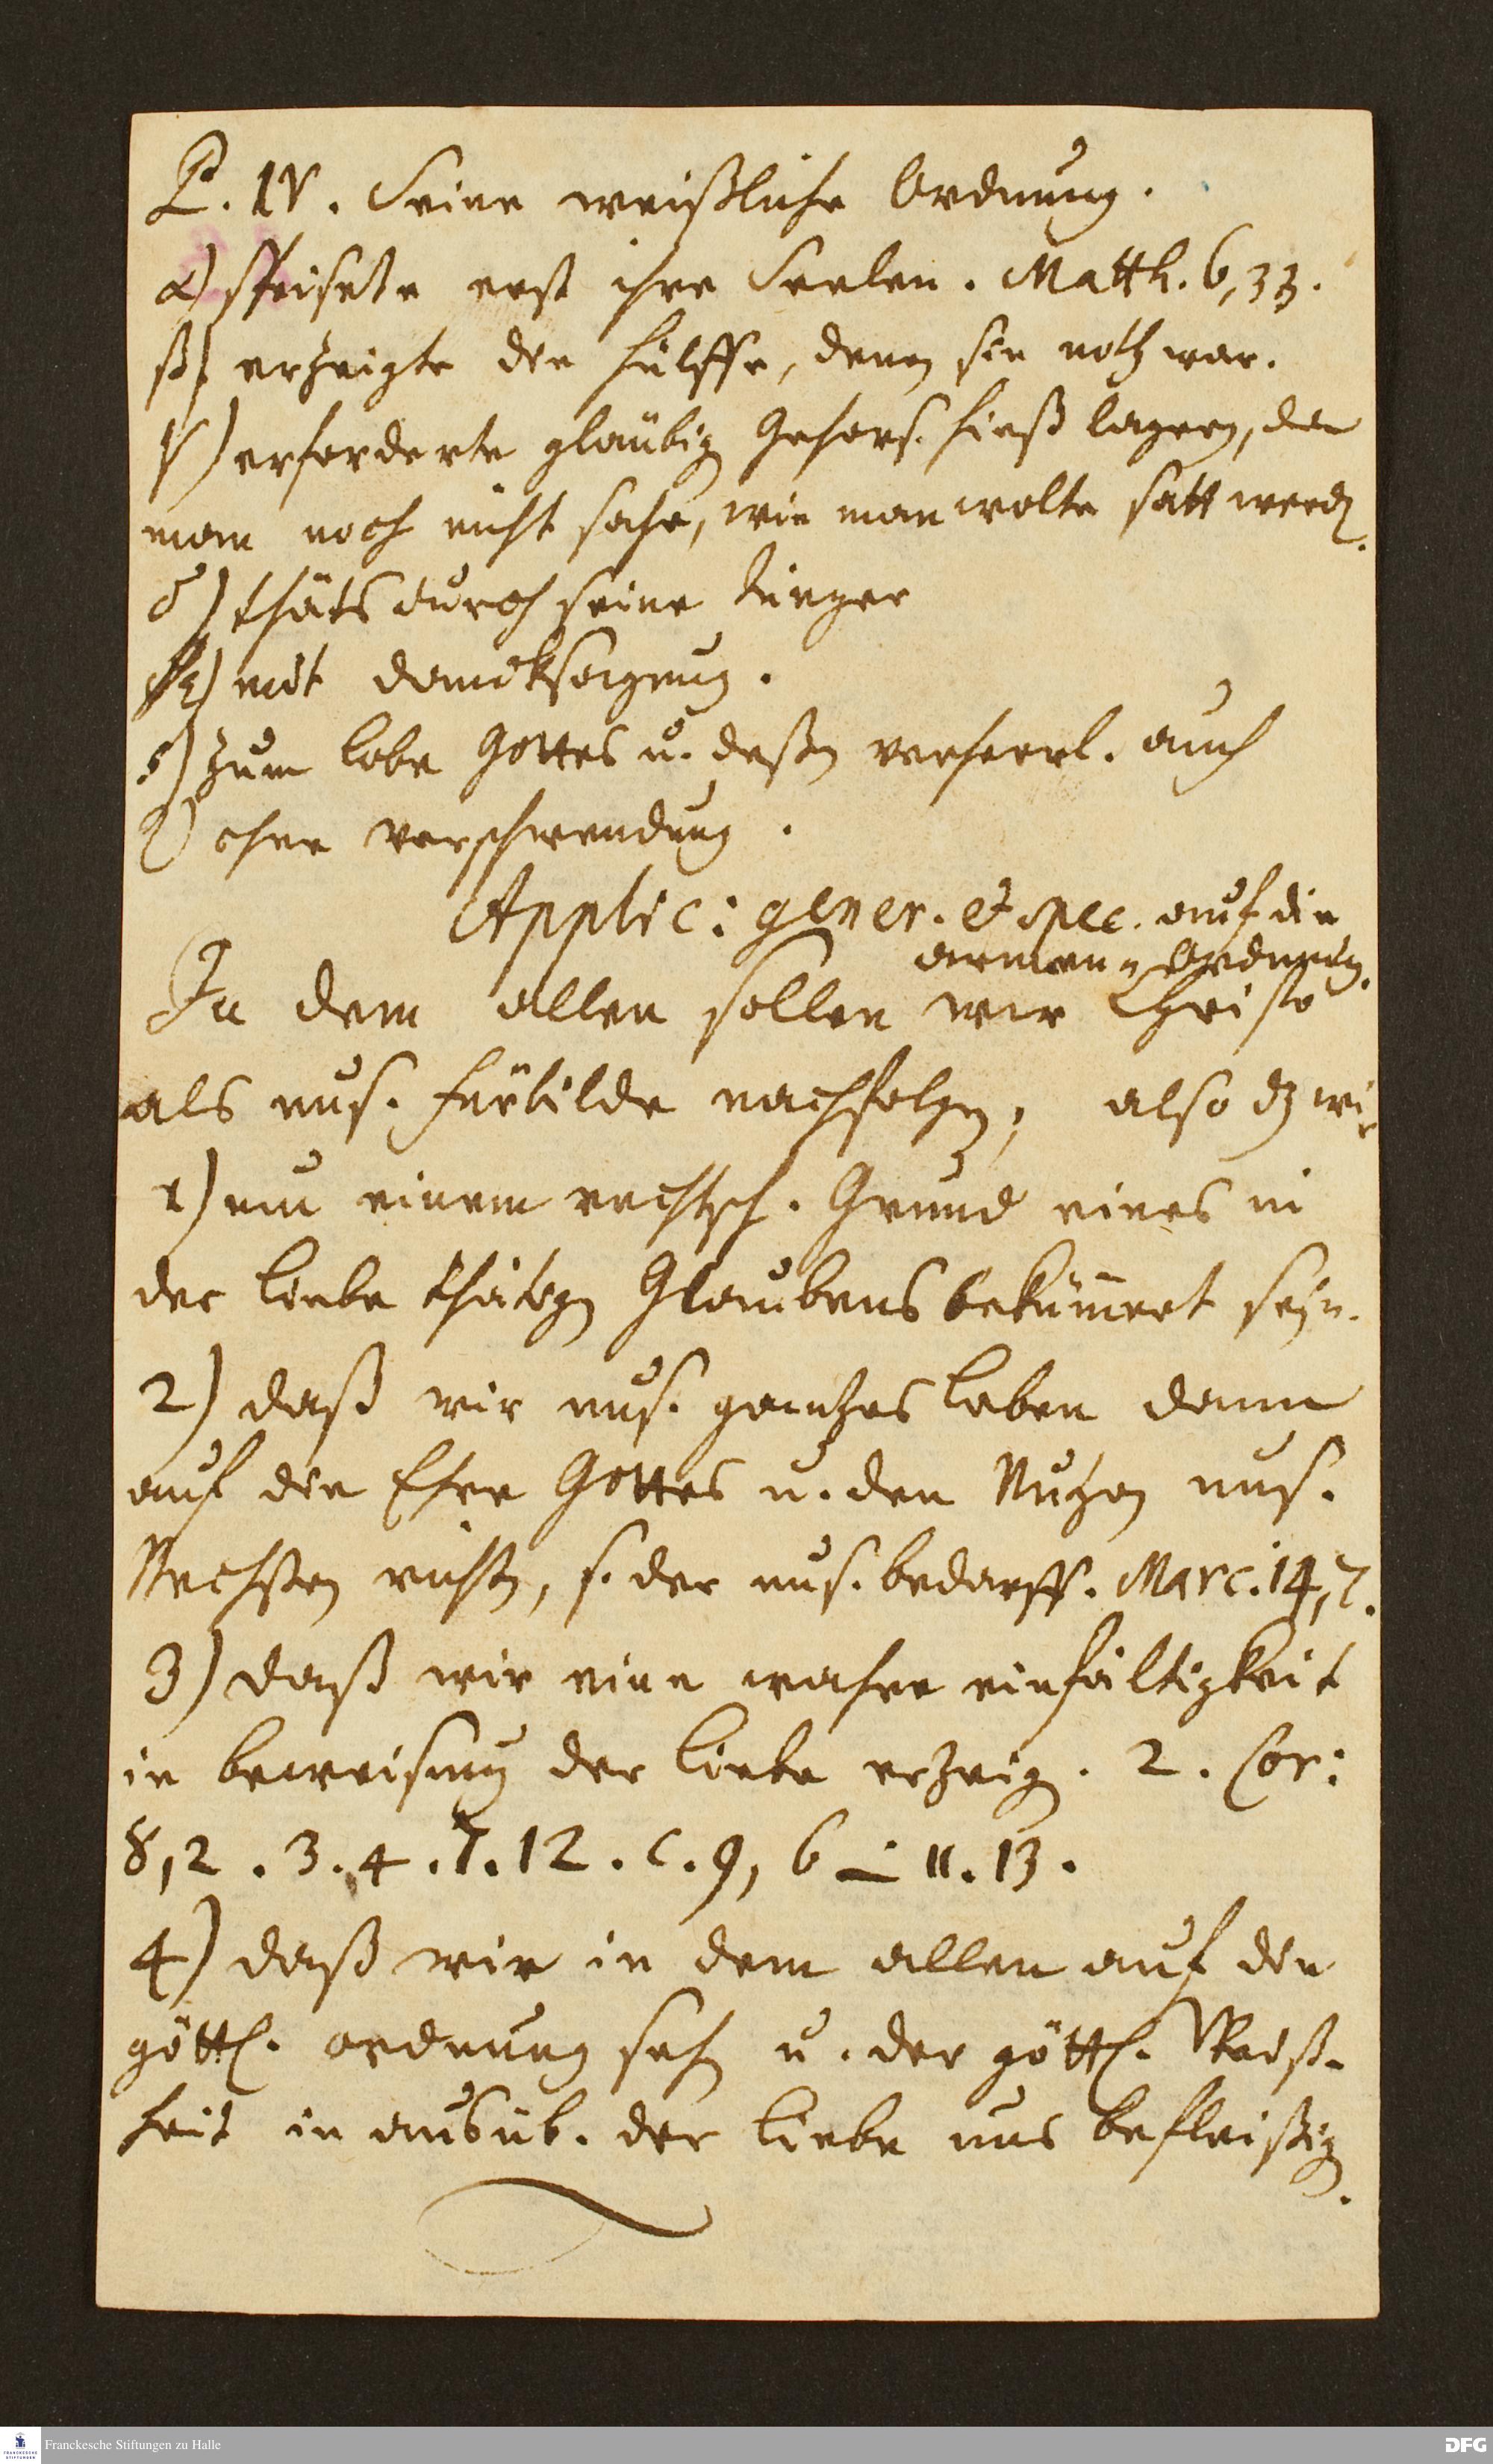 P. IV. Seine weißliche Ordnung.
α) speisete erst ihre Seelen. Matth. 6, 33.
β) erzeigte die hülffe, denen sie noth war.
γ) erforderte gläubig Gehors. hieß lagern, da
man noch nicht sahe, wie man wolte satt werden.
δ) thäts durch seine Jünger
ε) mit dancksagung.
ζ) zum lobe Gottes u. deßen verherrl. auch
η) ohne verschwendung.
Applic: gener. et spec. auf die
armen-Ordnung.
In dem allen sollen wir Christo
als uns. fürbilde nachfolgen, also dz wir
1) um einem rechtsch. Grund eines in
der liebe thätigen Glaubens bekümert seyn.
2) daß wir uns. gantzes leben dann
auf die Ehre Gottes u. den Nutzen uns.
Nechsten richten, s. der uns. bedarff. Marc. 14, 7.
3) daß wir eine wahre einfältigkeit
in beweisung der liebe erzeig. 2. Cor:
8, 2. 3. 4. 7. 12. C. 9, 6 – 11. 13.
4) daß wir in dem allen auf die
göttl. ordnung sehen u. der göttl. Weiß-
heit in ausüb. der liebe uns befleißig.
Franckesche Stiftungen zu Halle
DFG